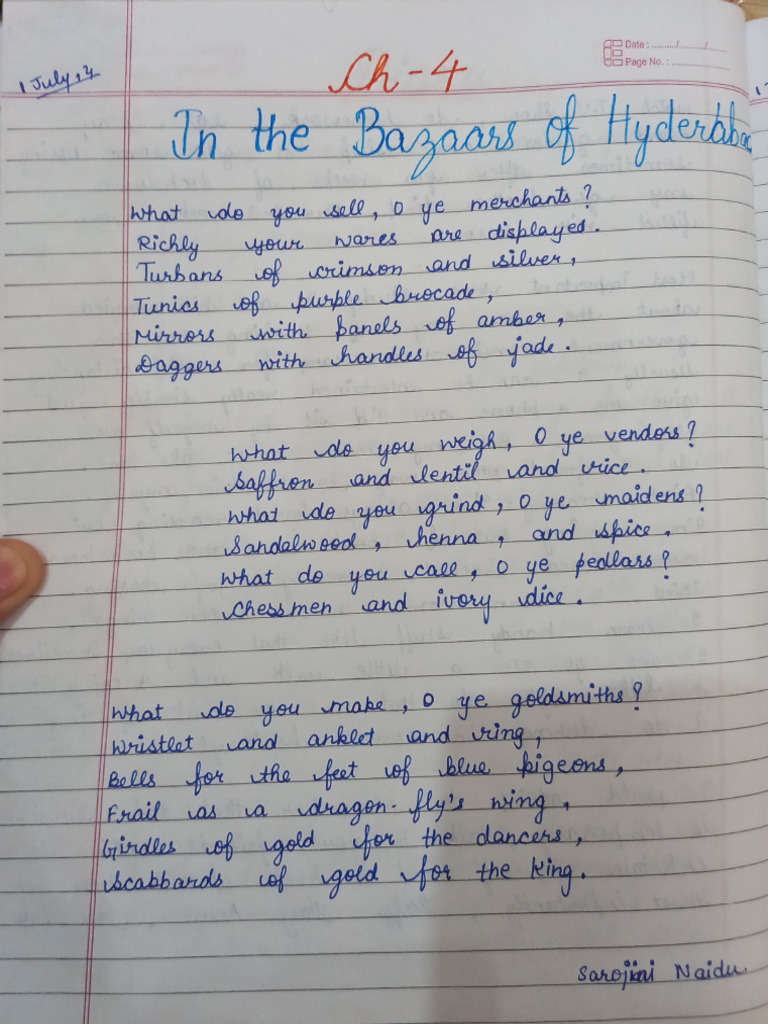 1 July, 24
Date : ........../........../..........
Page No. : ....................
Ch - 4
In the Bazaars of Hyderabad
What do you sell, O ye merchants?
Richly your wares are displayed.
Turbans of crimson and silver,
Tunics of purple brocade,
Mirrors with panels of amber,
Daggers with handles of jade.
What do you weigh, O ye vendors?
Saffron and lentil and rice.
What do you grind, O ye maidens?
Sandalwood, henna, and spice.
What do you call, O ye pedlars?
Chessmen and ivory dice.
What do you make, O ye goldsmiths?
Wristlet and anklet and ring,
Bells for the feet of blue pigeons,
Frail as a dragon-fly's wing,
Girdles of gold for the dancers,
Scabbards of gold for the king.
Sarojini Naidu